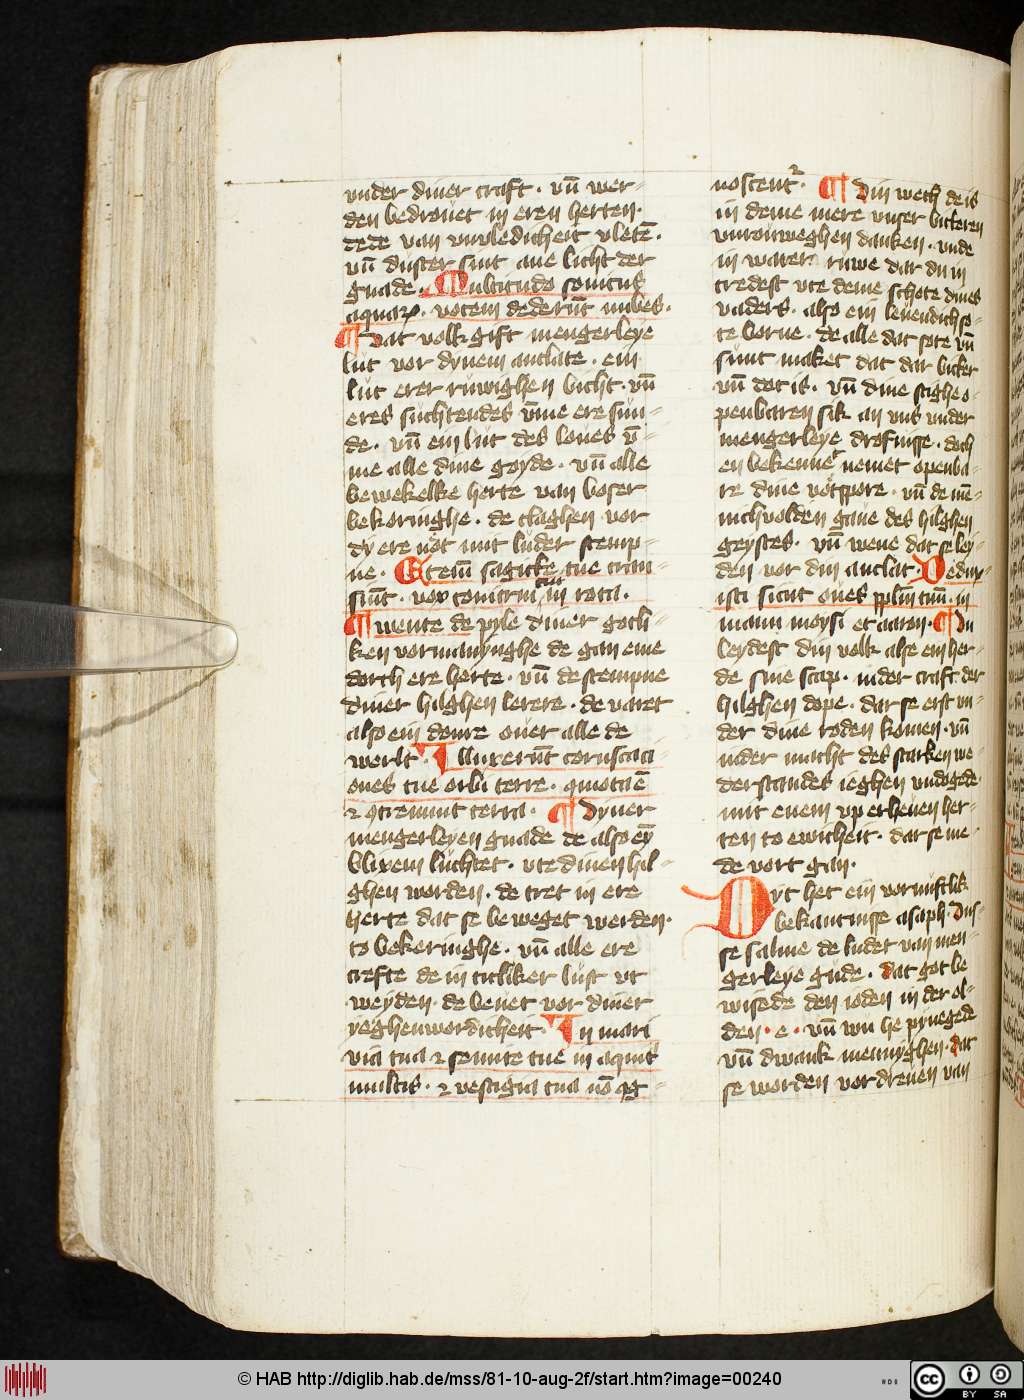 vnder diner craft · vn̄ wer-
den bedrouet in eren herten·
dede van vnvledicheit vletē·
vn̄ duster sint ane licht der
gnade · Multitudo sonitus
aquarꝝ · vocem dederūt nubes·
¶ Dat volk gift mengerleye
lut vor dynem anclate · ein
lut erer ruwighen bicht· vn̄
eres suchtendes vm̄e ere sun-
de · vn̄ ein lut des loues v̄-
me alle dine goyde · vn̄ alle
bewekelke herte van boser
bekoringhe · de claghen vor
dy ere not mit luder stemp-
ne · Etenī sagitte tue tran-
siūt · vox tonitrui tui in rota·
¶ wente de pyle diner gotli-
ken vormanynghe de gan eme
dorch ere herte · vn̄ de stempne
diner hilghen lerere · de varet
also ein donre ouer alle de
werlt· Illuxerūt coruscaci-
ones tue orbi terre · qmota ē
⁊ qtremuit terra · ¶ Dyner
mengerleyen gnade de also eȳ
blixem luchtet · vte dinen hil-
ghen worden · de tret in ere
herte dat se beweget werden·
to bekeringhe · vn̄ alle ere
crefte de in titliker lust vt
weyden · de beuet vor diner
yeghenwordicheit· In mari
via tua ⁊ semite tue in aquis
multis · ⁊ vestigia tua nō qg-
noscent᷑· ¶ Din wech de is
in deme mere vnser bitteren
vnrouweghen danken · vnde
in water ruwe dar du in
tredest vte deme schote dines
vaders · also ein leuendich so-
te borne · de alle dat sote vn̄
sunt maket dat dar bitter
vn̄ dot is · vn̄ dine stighe o-
penbaren sik an vns vnder
mengerleye drofnisse · doch
en bekenne nemet openba-
re dine votspore · vn̄ de mē-
nichvolden gaue des hilghen
geystes · vn̄ wene dat se ley-
den vor din anclat· Dedux-
isti sicut oues pplm̄ tuū · in
manu moysi et aaron · ¶ Du
leydest din volk alse ein her-
de sine scap · in der craft der
hilghen dope · dar se erst vn-
der dine roden komen · vn̄
in der macht des starken we-
derstandes ieghen vndogede
mit enem vp erheuen her-
ten to ewicheit · dar se me-
de vort gan·
Dyt het ein vornuftlik
bekantnisse asaph· Dus-
se salme de ludet van men-
gerleye gude · dat got be
wisede den ioden in der ol-
den · e · vn̄ wu he pynegede
vn̄ dwank mennyghen · dat
se worden vordreuen van
© HAB http://diglib.hab.de/mss/81-10-aug-2f/start.htm?image=00240
BY SA